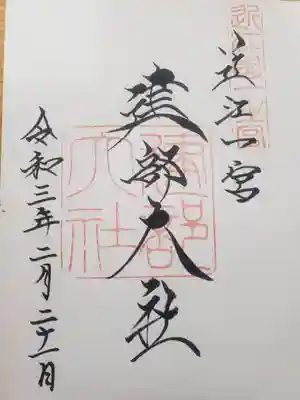 近江一宮
建部大社
令和三年二月二十一日
近江一宮
建部大社